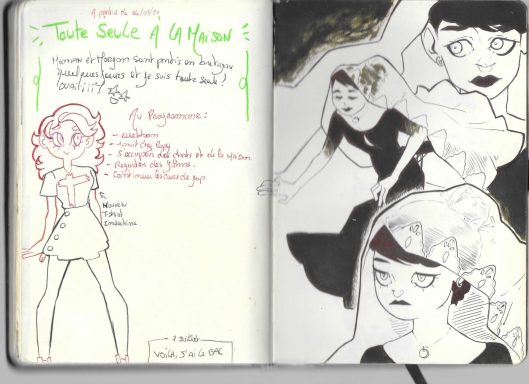 A partir du
TOUTE SEULE À LA MAISON
Maman et Morgan sont partis en bretagne
quelques jours et je suis toute seule !
ouaiiii !
Au Programme :
- webtoon
- s'occuper des chats et de la Maison
- Regarder des films.
- Continuer les cours de
Nouveau
T-shirt
Indochine
7 juillet
VOILÀ, J'AI LE BAC